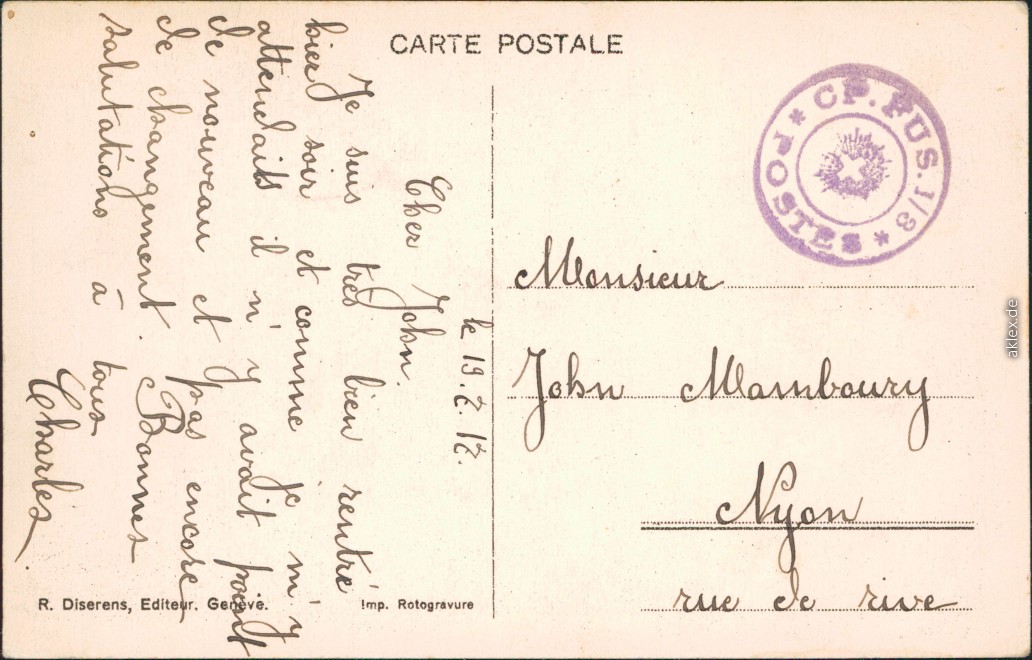 CARTE POSTALE
le 19.2.12.
Cher John.
Je suis très bien rentré
hier soir et comme je m'y
attendaits il n'y avait point
de nouveau et pas encore
de changement. Bonnes
salutations à tous
Charles.
CP. FUS. 1/3
* POSTES *
Monsieur
John Mamboury
Nyon
rue de rive
R. Diserens, Editeur, Genève.
Imp. Rotogravure
aklex.de